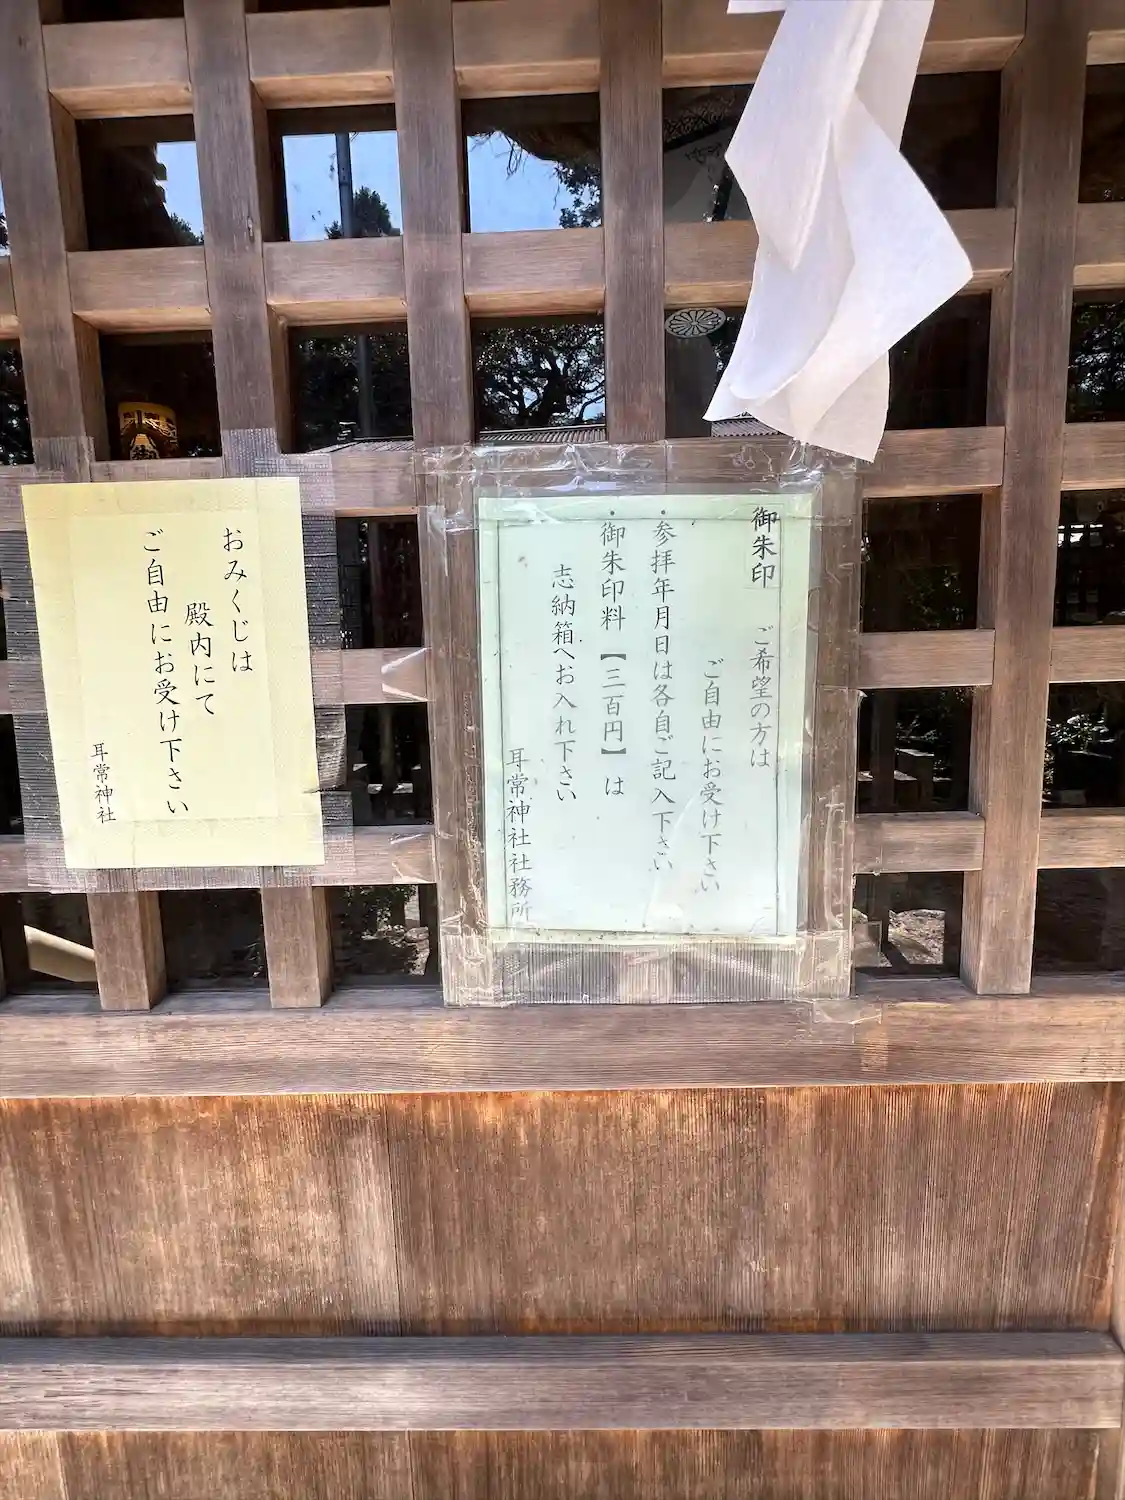 御朱印 ご希望の方は
ご自由にお受け下さい
・参拝年月日は各自ご記入下さい
・御朱印料【三百円】は
志納箱へお入れ下さい
耳常神社社務所
おみくじは
殿内にて
ご自由にお受け下さい
耳常神社